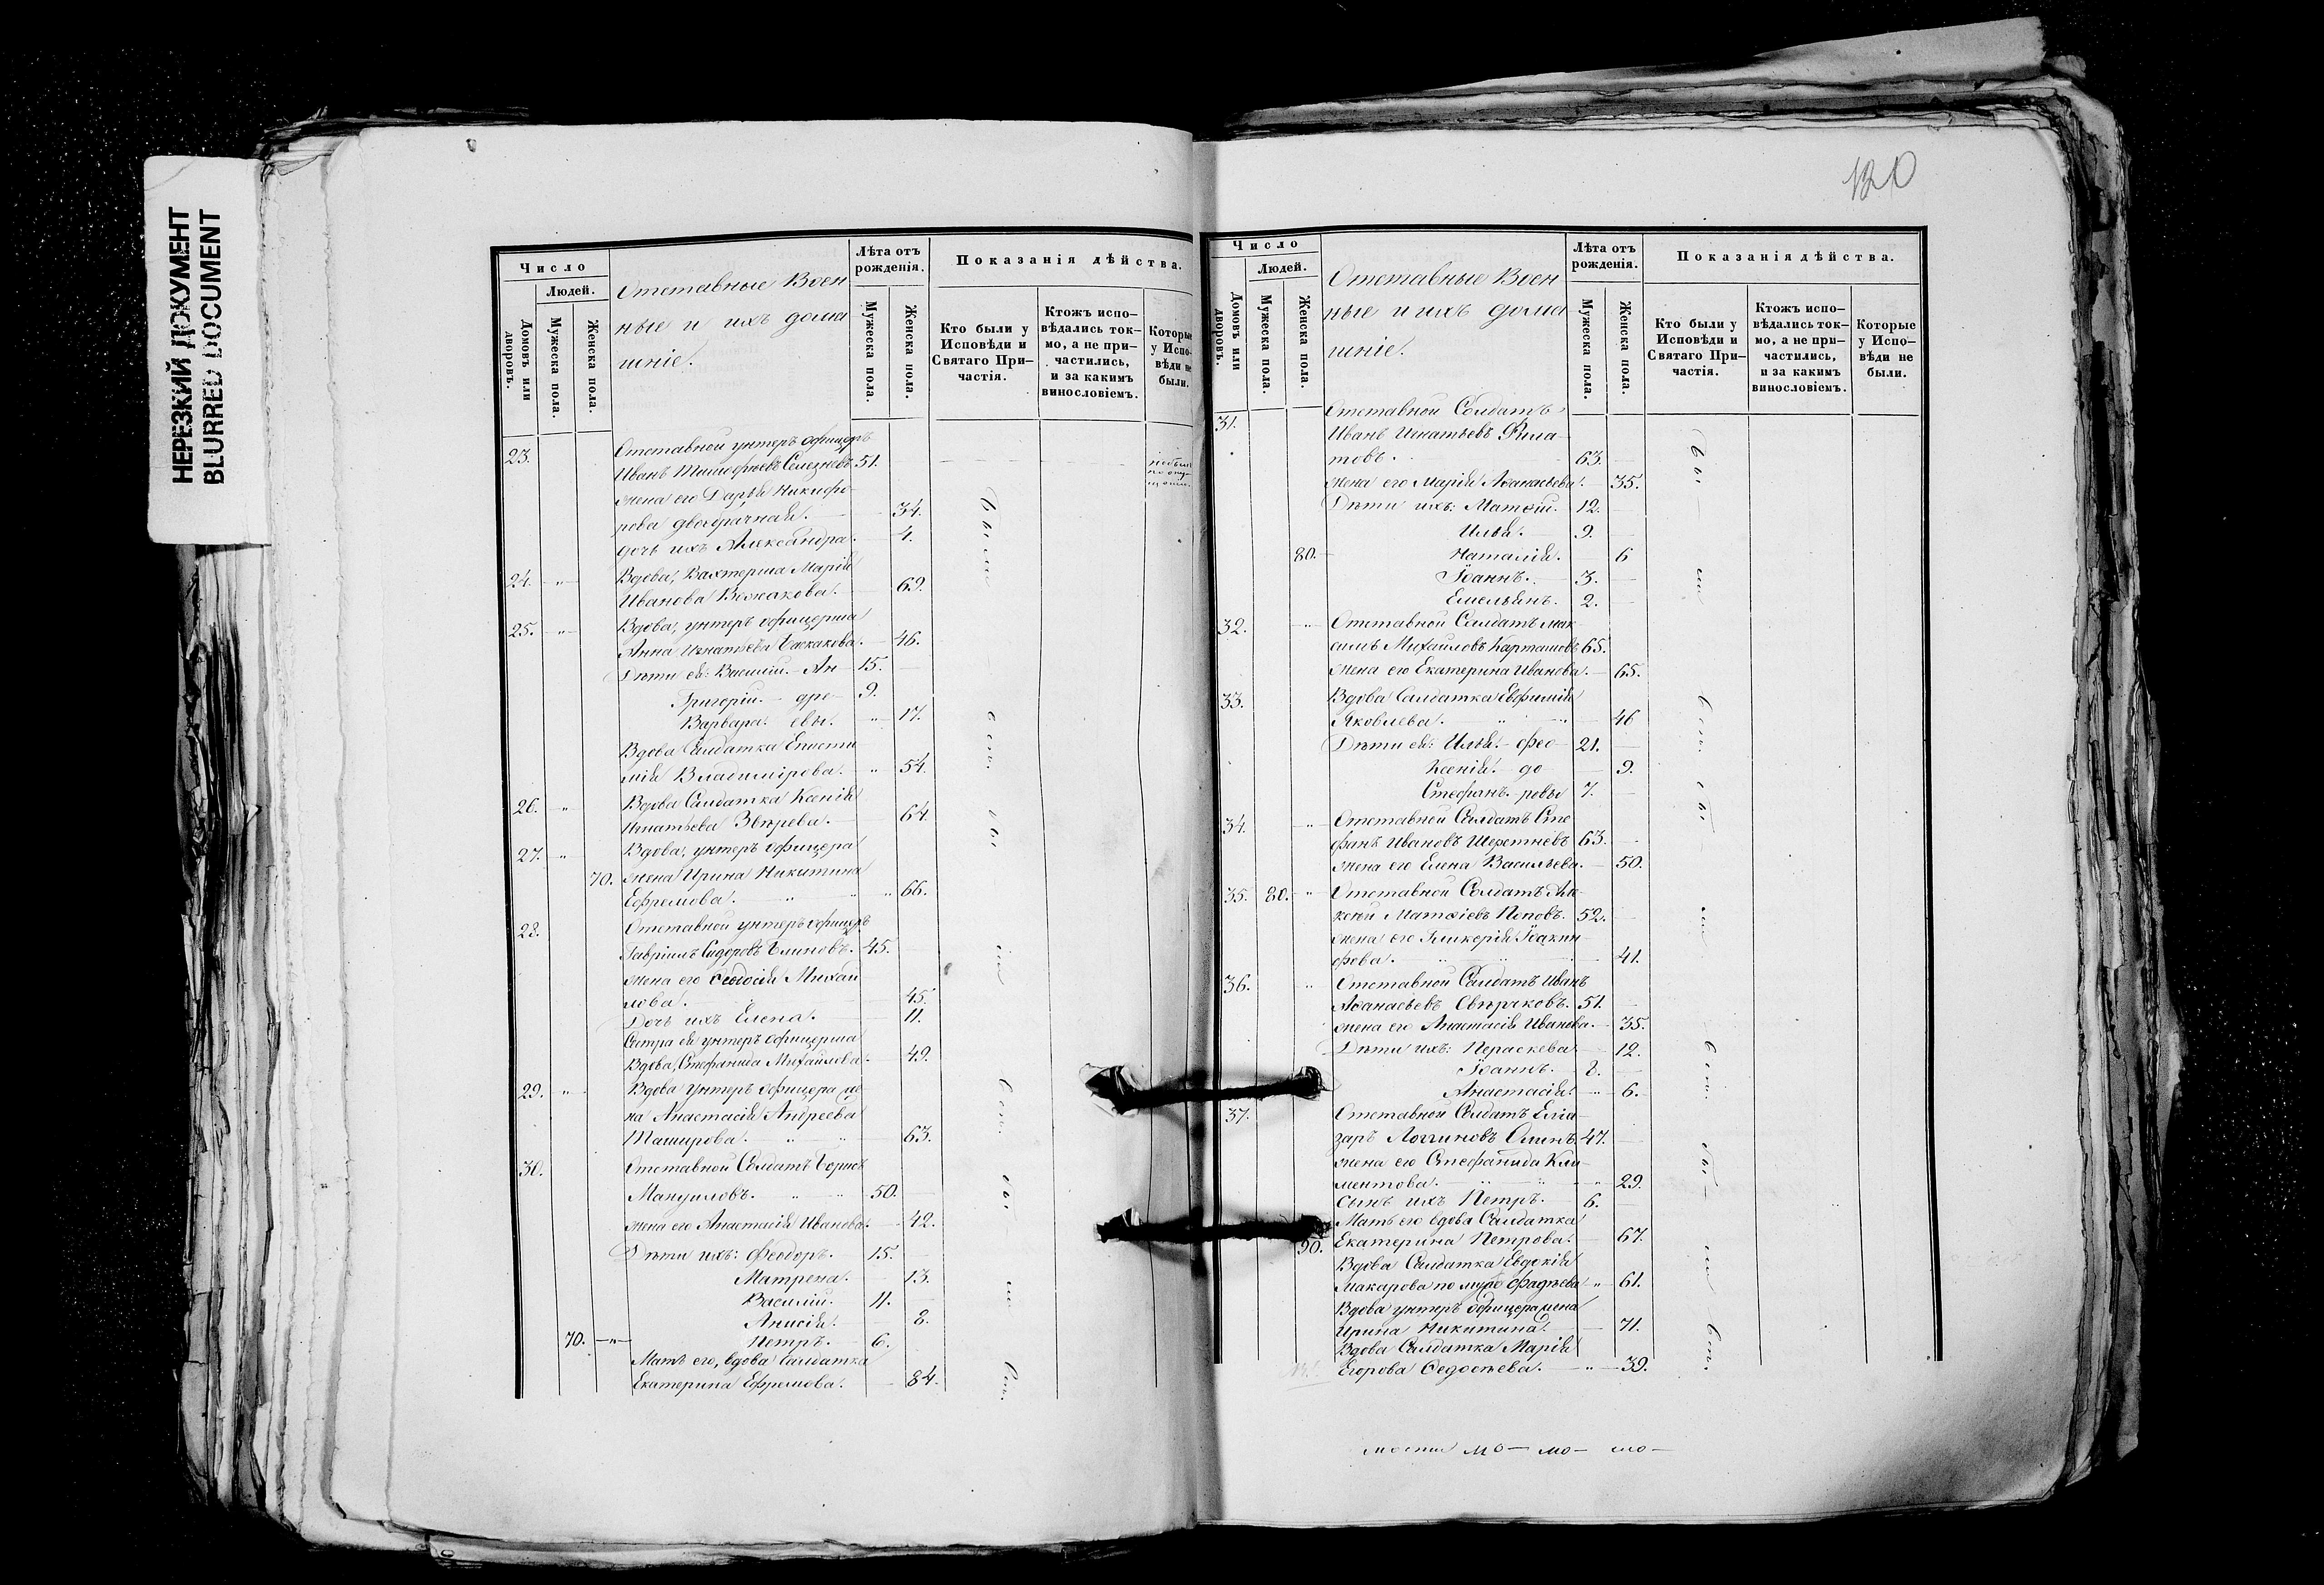 НЕРЕЗКИЙ ДОКУМЕНТ
BLURRED DOCUMENT
Число
Людей.
Домовъ или дворовъ.
Мужеска пола.
Женска пола.
Отставные Воен
ные и ихъ дома
шніе.
Лѣта отъ рожденія.
Мужеска пола.
Женска пола.
Показанія дѣйства.
Кто были у Исповѣди и Святаго При-частія.
Ктожъ испо-вѣдались ток-мо, а не при-частились, и за какимъ винословіемъ.
Которые у Испо-вѣди не были.
23. Отставной унтеръ офицеръ
Иванъ Тимофѣевъ Селезневъ 51.
жена его Дарья Никифо-
рова двоебрачная. 34.
дочь ихъ Александра. 4.
24. " Вдова, Вахтерша Марія
Иванова Вожакова. 69.
25. " Вдова, унтеръ офицерша
Анна Игнатьева 46.
Дѣти ея: Василій. Ан 15.
Григорій. дре 9.
Варвара. евы. " 17.
Вдова Солдатка Еписти
мія Владимірова. " 54.
26. " Вдова Солдатка Ксенія
Игнатьева Звѣрева. 64.
27. " Вдова, унтеръ офицера
70. жена Ирина Никитина
Ефремова. " " 66.
28. Отставной унтеръ офицеръ
Гавріилъ Сидоровъ Блиновъ. 45.
жена его Ѳеодосія Михаи
лова. 45.
Дочь ихъ Елена. 11.
Сестра ея унтеръ офицерша
Вдова, Стефанида Михайлова. 49.
29. " Вдова унтеръ офицера же
на Анастасія Андреева
Таширова. " " 63.
30. Отставной Солдатъ Борисъ
Мануиловъ. " " 50.
жена его Анастасія Иванова. 42.
Дѣти ихъ: Феодоръ. 15.
Матрена. 13.
Василій. 11.
Анисія. 8.
70. " Петръ. 6.
Мать его, вдова Солдатка
Екатерина Ефремова. 84.
120
Число
Людей.
Домовъ или дворовъ.
Мужеска пола.
Женска пола.
Отставные Воен
ные и ихъ дома
шніе.
Лѣта отъ рожденія.
Мужеска пола.
Женска пола.
Показанія дѣйства.
Кто были у Исповѣди и Святаго При-частія.
Ктожъ испо-вѣдались ток-мо, а не при-частились, и за какимъ винословіемъ.
Которые у Испо-вѣди не были.
31. Отставной Солдатъ
Иванъ Игнатьевъ Фила-
товъ. 63.
жена его Марія Аѳанасьева. 35.
Дѣти ихъ: Матѳій. 12.
Илья. 9.
80. Наталія. 6
Іоаннъ. 3.
Емельянъ. 2.
32. " Отставной Солдатъ Мак
симъ Михайловъ Карташовъ 65.
жена его Екатерина Иванова. 65.
33. Вдова Солдатка Евфимія
Яковлева. " " 46
Дѣти ея: Илья. фео 21.
Ксенія. до 9.
Стефанъ. ровы 7.
34. " Отставной Солдатъ Сте
фанъ Ивановъ Шереметневъ 63.
жена его Елена Васильева. 50.
35. 80. " Отставной Солдатъ Але
ксѣй Матѳіевъ Поповъ. 52.
жена его Гликерія Іоакин
фова. " " 41.
36. " Отставной Солдатъ Иванъ
Аѳанасьевъ Свѣрчковъ. 51.
жена его Анастасія Иванова. 35.
Дѣти ихъ: Пераскева. 12.
Іоаннъ. 8.
Анастасія. " 6.
37. Отставной Солдатъ Елеа
заръ Логгиновъ 47.
жена его Стефанида Кли
ментова. " " 29.
Сынъ ихъ Петръ. 6.
Мать его вдова Солдатка
90. Екатерина Петрова. 67.
Вдова Солдатка Евдокія
Макарова по мужѣ Фадѣева " 61.
Вдова унтеръ офицера жена
Ирина Никитина. 71.
Вдова Солдатка Марія
Егорова Ѳедосѣева. " 39.